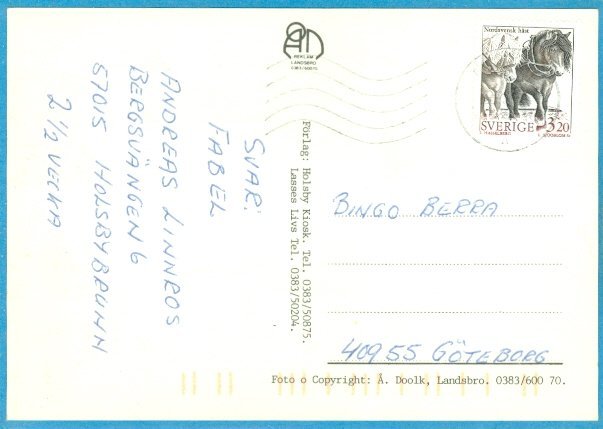 ÅD
REKLAM
LANDSBRO
0383/600 70
Nordsvensk häst
SVERIGE 3.20
SVAR:
FABEL
ANDREAS LINNROS
BERGSVÄNGEN 6
57015 HOLSBYBRUNN
2 1/2 VECKA
Förlag: Holsby Kiosk. Tel. 0383/50875.
Lasses Livs Tel. 0383/50204.
BINGO BERRA
40955 GÖTEBORG
Foto o Copyright: Å. Doolk, Landsbro. 0383/600 70.